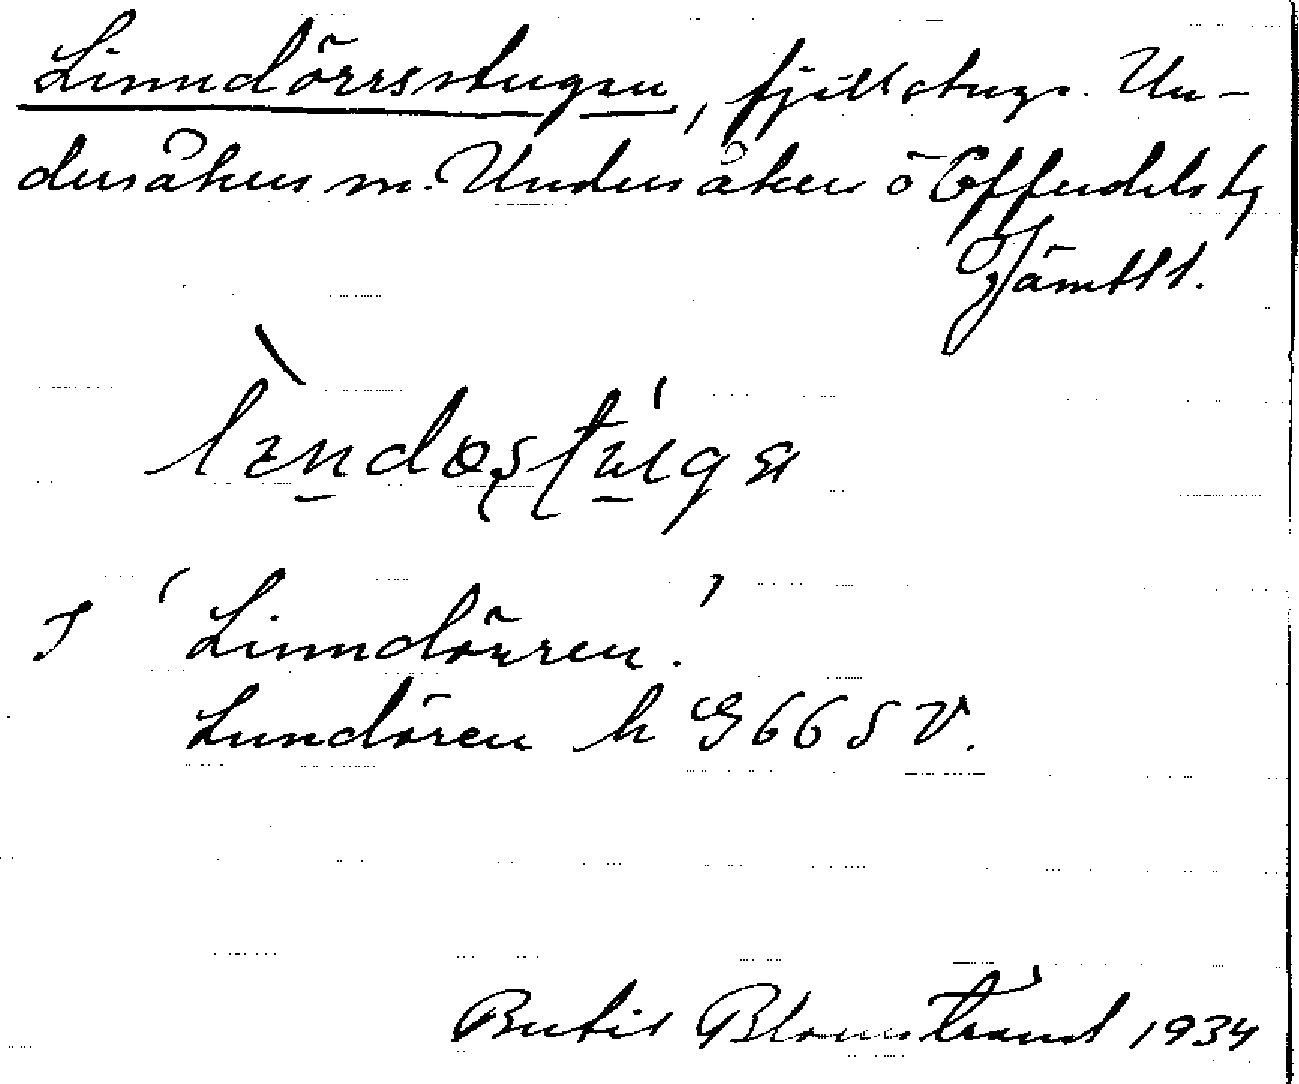 Linndörrsstugan, fjällstuga. Un-
dersåkers sn. Undersåker o Offerdals tg
Jämtl.
Linndörren.
Lundören h G 66 S V.
Bertil Blomstrand 1934